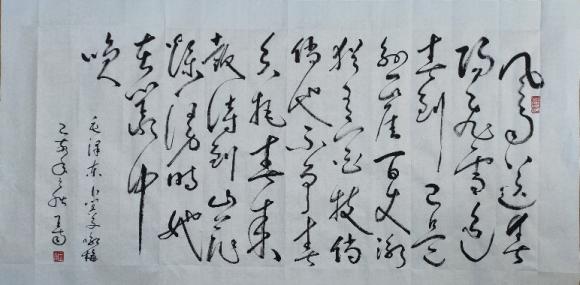 风雨送春
归飞雪迎
春到已是
悬崖百丈冰
犹有花枝俏
俏也不争春
只把春来
报待到山花
烂漫时她
在丛中
笑
毛泽东卜算子咏梅
己亥年之秋